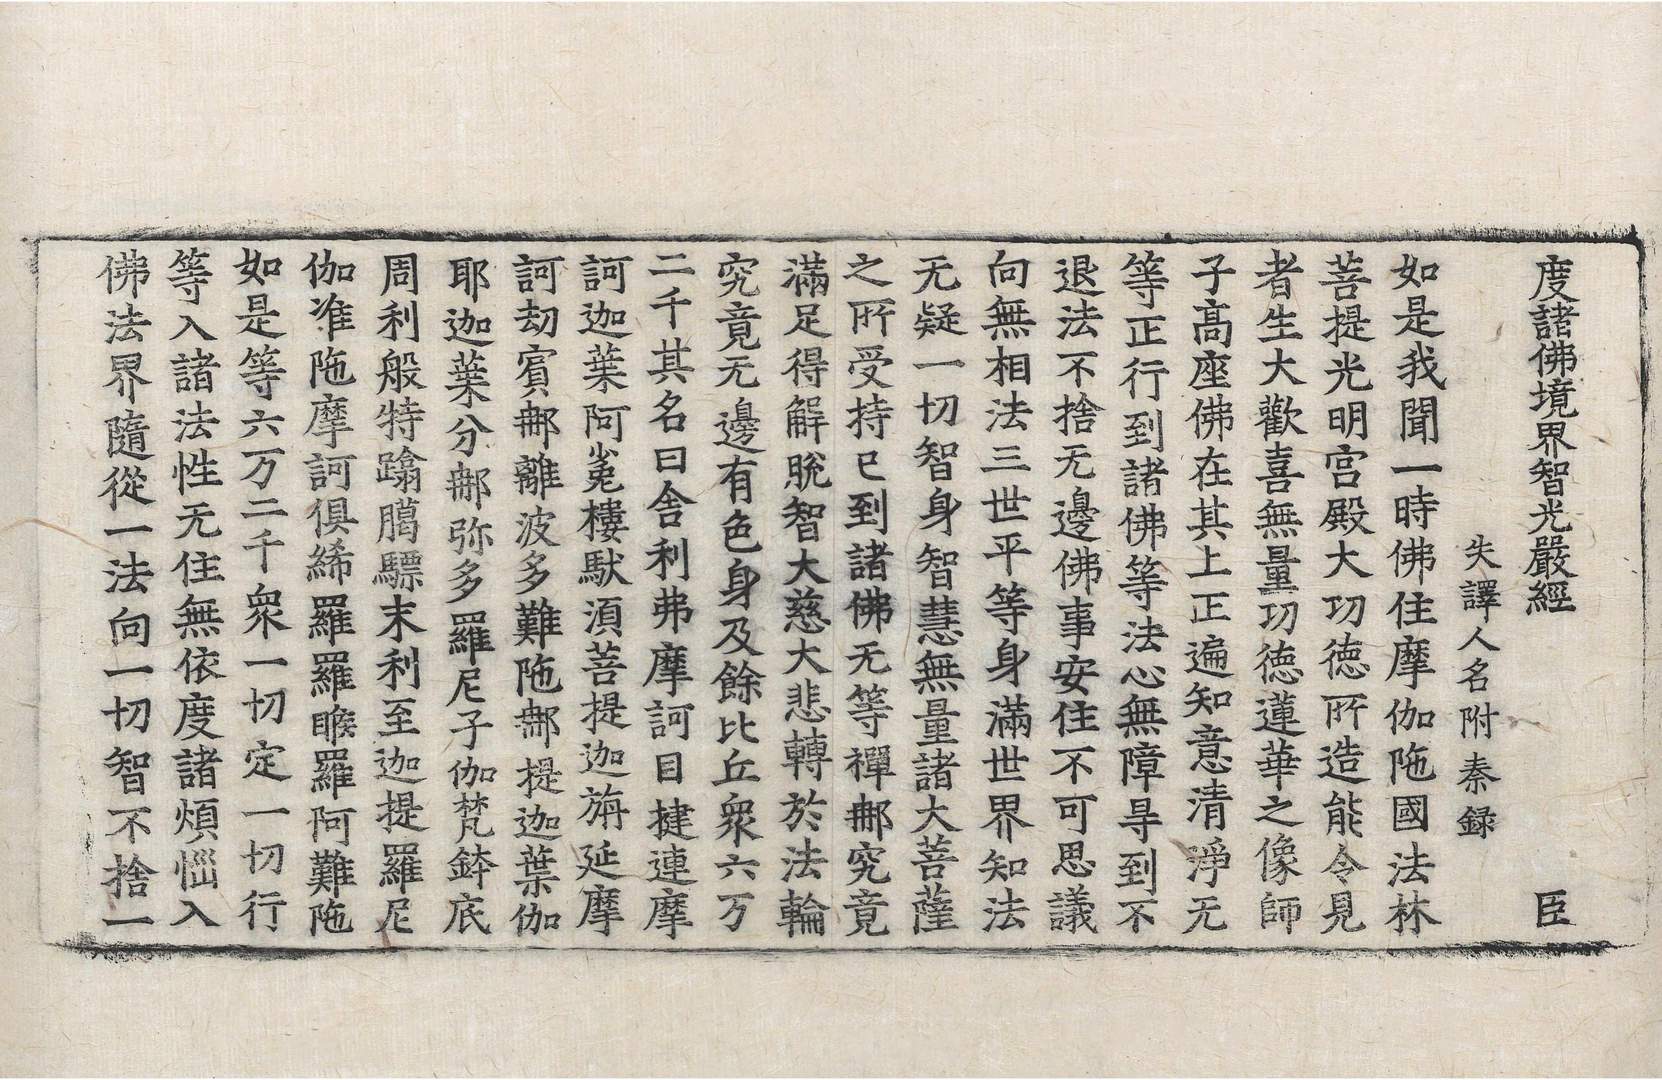 度諸佛境界智光嚴經 臣
失譯人名附秦録
如是我聞一時佛住摩伽陁國法林
菩提光明宫殿大功徳所造能令見
者生大歡喜無量功徳蓮華之像師
子髙座佛在其上正遍知意清淨无
等正行到諸佛等法心無障㝵到不
退法不捨无邊佛事安住不可思議
向無相法三世平等身滿世界知法
无疑一切智身智慧無量諸大菩薩
之所受持已到諸佛无等禪那究竟
滿足得解脫智大慈大悲轉於法輪
究竟无邊有色身及餘比丘衆六万
二千其名曰舍利弗摩訶目揵連摩
訶迦葉阿㝹樓馱湏菩提迦旃延摩
訶劫賓那離波多難陁那提迦葉伽
耶迦葉分那弥多羅尼子伽梵鉢底
周利般特蹹臈驃末利至迦提羅尼
伽准陁摩訶俱絺羅羅睺羅阿難陁
如是等六万二千衆一切定一切行
等入諸法性无住無依度諸煩惱入
佛法界隨從一法向一切智不捨一